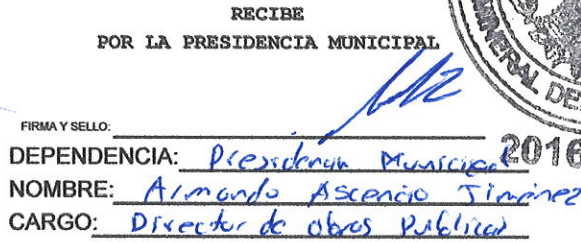 RECIBE
POR LA PRESIDENCIA MUNICIPAL
MINERAL DE
FIRMA Y SELLO:
2016
DEPENDENCIA: Presidencia Municipal
NOMBRE: Armando Ascencio Jimenez
CARGO: Director de obras Publicas